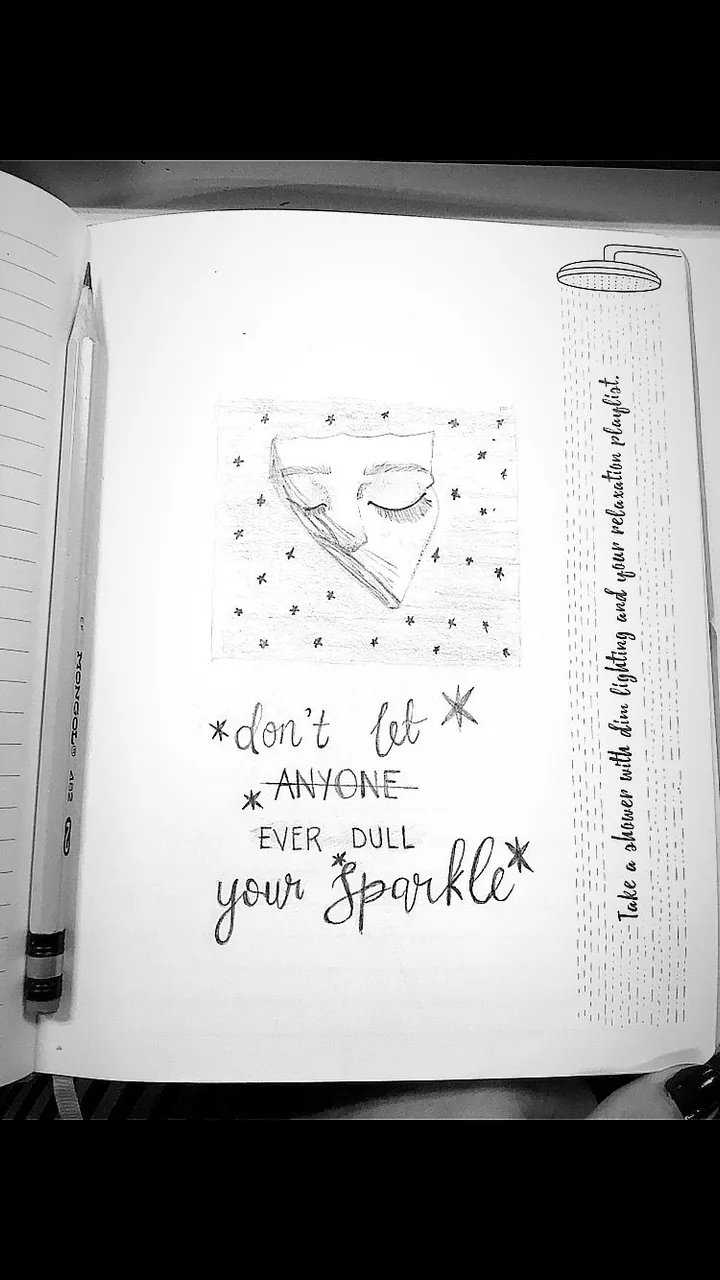 *don't let*
*ANYONE
EVER DULL
your *sparkle*
Take a shower with dim lighting and your relaxation playlist.
MONGOL® 482